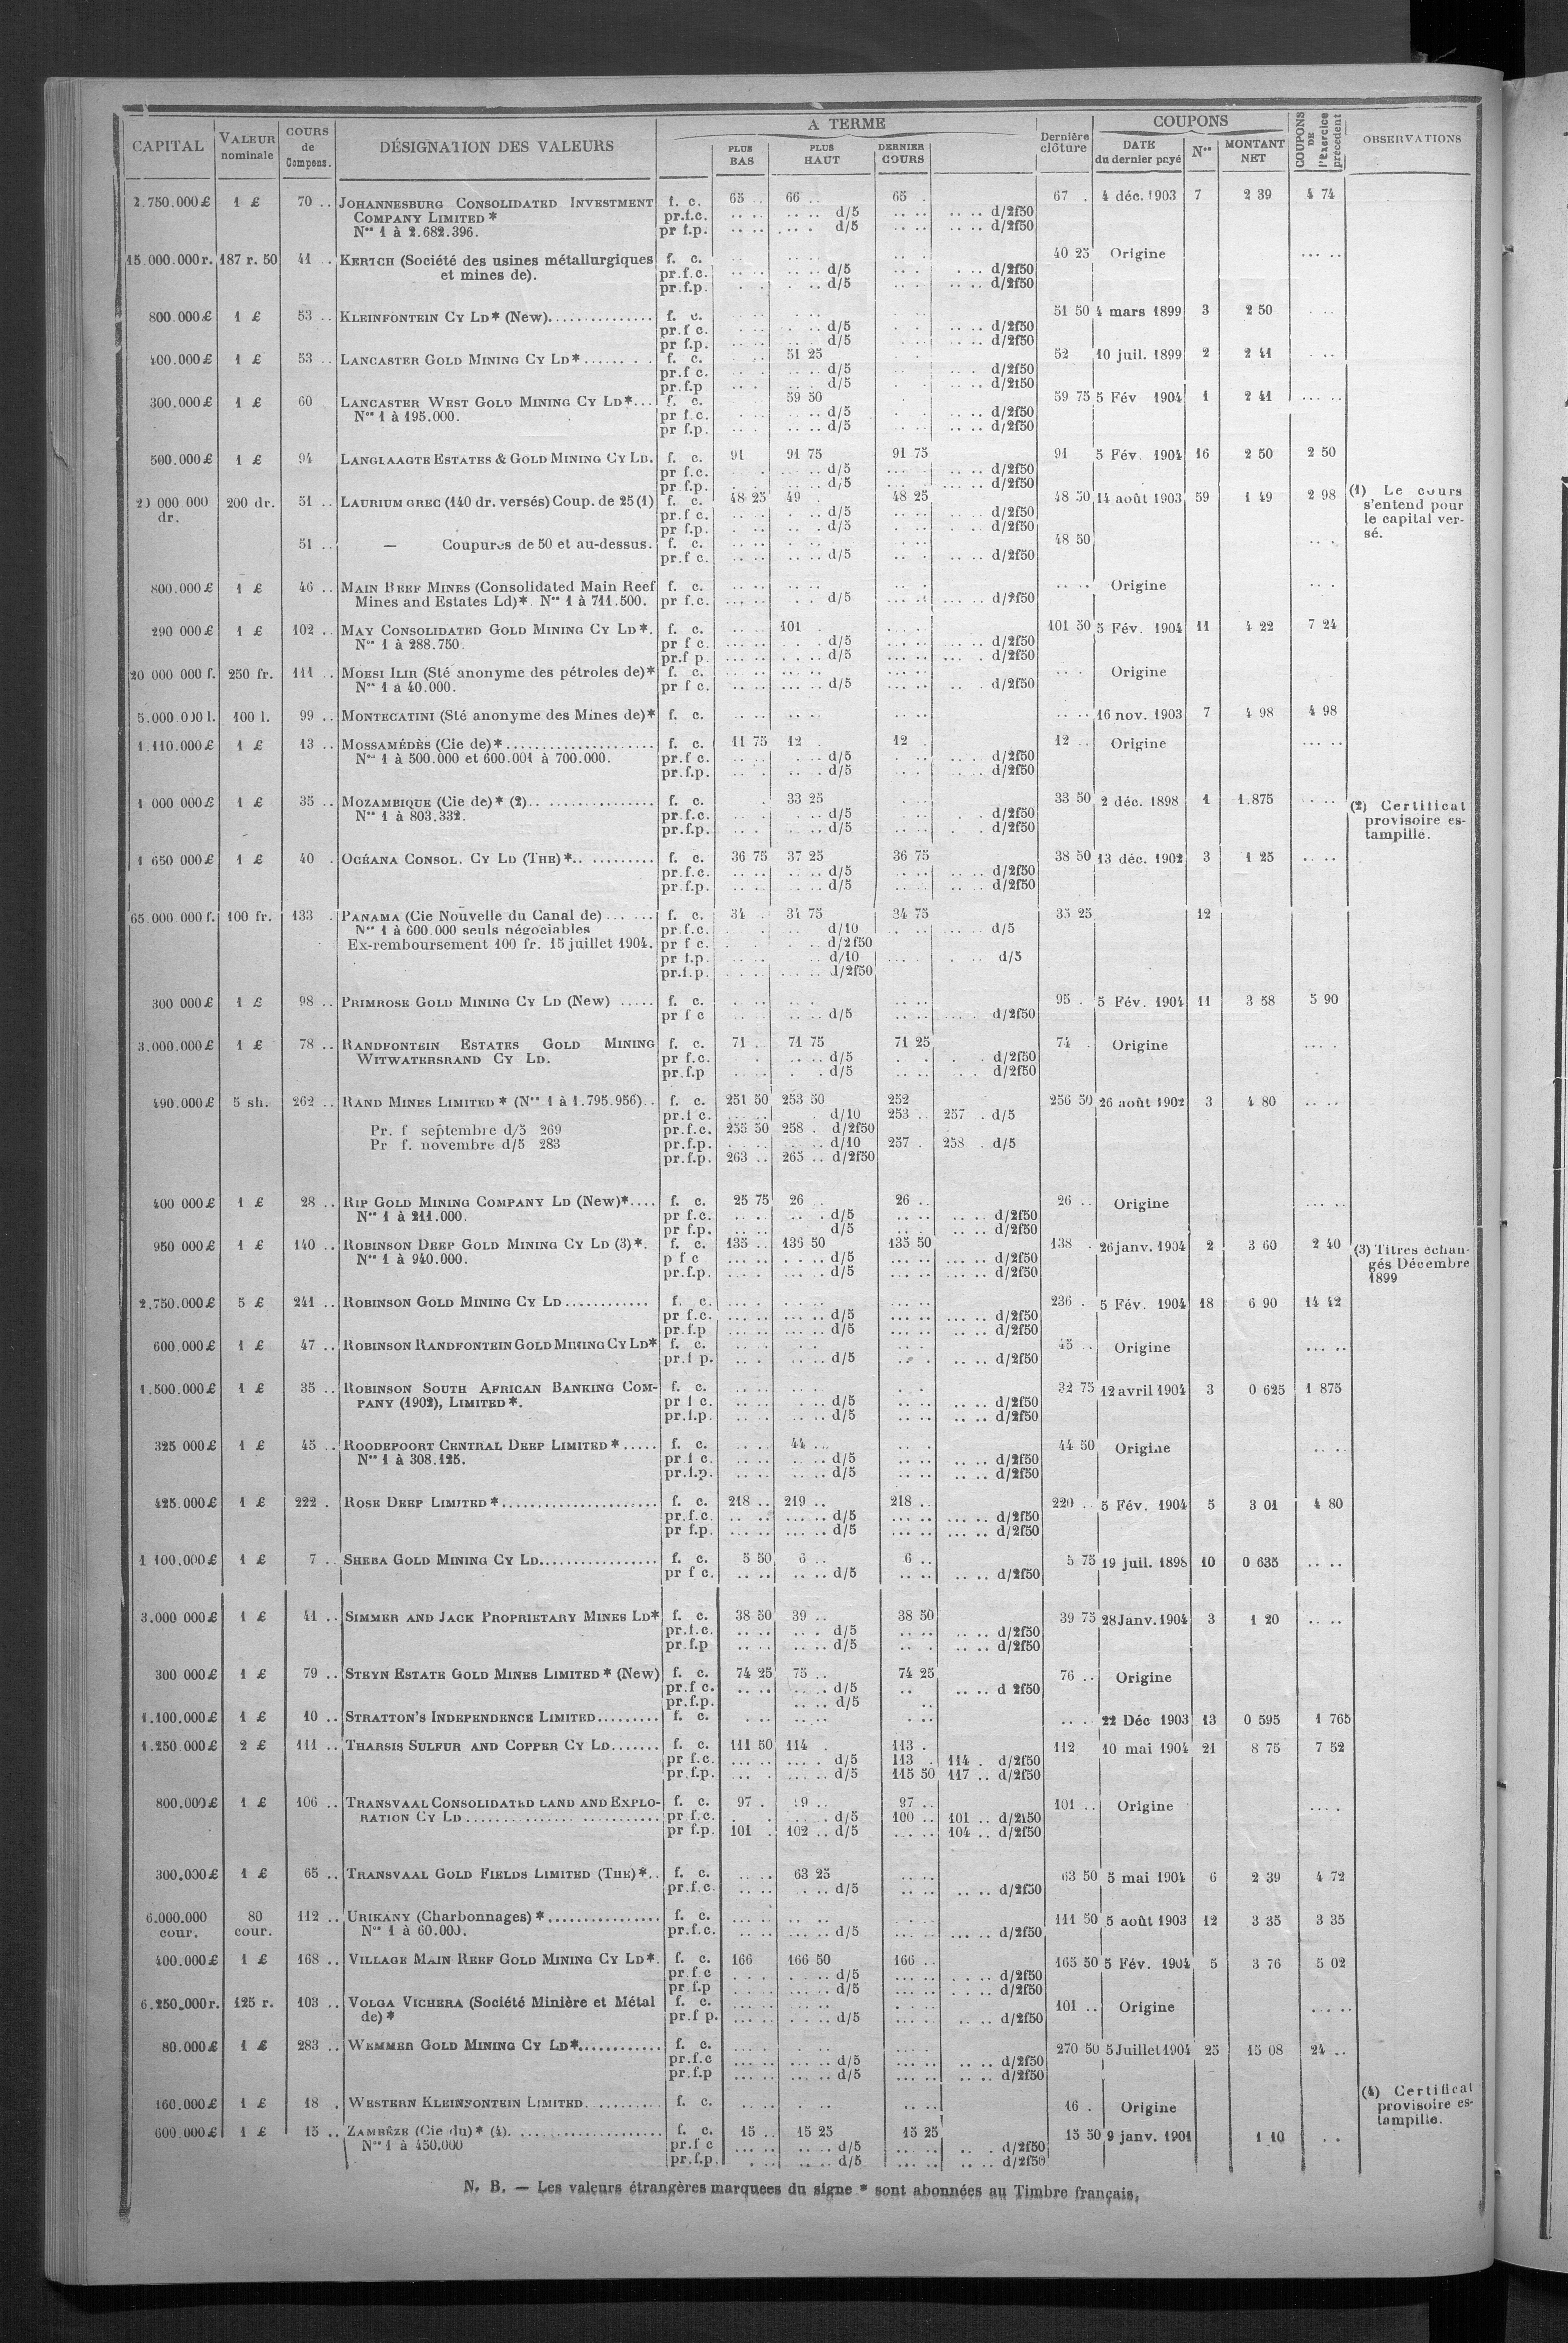 CAPITAL VALEUR nominale COURS de Compens. DÉSIGNATION DES VALEURS A TERME PLUS BAS PLUS HAUT DERNIER COURS Dernière clôture COUPONS DATE du dernier payé Nos MONTANT NET COUPONS DE l'Exercice précédent OBSERVATIONS
2.750.000 £ 1 £ 70 .. JOHANNESBURG CONSOLIDATED INVESTMENT f. c. 65 .. 66 .. 65 . 67 . 4 déc. 1903 7 2 39 4 74
COMPANY LIMITED * pr.f.c. d/5 d/2f50
Nos 1 à 2.682.396. pr f.p. d/5 d/2f50
15.000.000 r. 187 r. 50 41 . KERTCH (Société des usines métallurgiques f. c. 40 25 Origine
et mines de). pr.f.c. d/5 d/2f50
pr.f.p. d/5 d/2f50
800.000 £ 1 £ 53 .. KLEINFONTEIN CY LD* (New) f. c. 51 50 4 mars 1899 3 2 50
pr.f c. d/5 d/2f50
pr f.p. d/5 d/2f50
400.000 £ 1 £ 53 .. LANCASTER GOLD MINING CY LD* f. c. 51 25 52 10 juil. 1899 2 2 41
pr.f c. d/5 d/2f50
pr.f.p d/5 d/2f50
300.000 £ 1 £ 60 LANCASTER WEST GOLD MINING CY LD* f. c. 59 50 59 75 5 Fév 1904 1 2 41
Nos 1 à 195.000. pr f.c. d/5 d/2f50
pr f.p. d/5 d/2f50
500.000 £ 1 £ 94 LANGLAAGTE ESTATES & GOLD MINING CY LD. f. c. 91 91 75 91 75 91 5 Fév. 1904 16 2 50 2 50
pr f.c. d/5 d/2f50
pr f.p. d/5 d/2f50
20 000 000 dr. 200 dr. 51 .. LAURIUM GREC (140 dr. versés) Coup. de 25 (1) f. c. 48 25 49 . 48 25 48 50 14 août 1903 59 1 49 2 98 (1) Le cours s'entend pour le capital versé.
pr.f c. d/5 d/2f50
pr f.p. d/5 d/2f50
51 .. — Coupures de 50 et au-dessus. f. c. 48 50
pr.f c. d/5 d/2f50
800.000 £ 1 £ 46 .. MAIN REEF MINES (Consolidated Main Reef f. c. Origine
Mines and Estates Ld)*. Nos 1 à 711.500. pr f.c. d/5 d/2f50
290 000 £ 1 £ 102 .. MAY CONSOLIDATED GOLD MINING CY LD*. f. c. 101 101 50 5 Fév. 1904 11 4 22 7 24
Nos 1 à 288.750. pr f c. d/5 d/2f50
pr.f p. d/5 d/2f50
20 000 000 f. 250 fr. 111 .. MOESI ILIR (Sté anonyme des pétroles de)* f. c. Origine
Nos 1 à 40.000. pr f c. d/5 d/2f50
5.000.000 l. 100 l. 99 .. MONTECATINI (Sté anonyme des Mines de)* f. c. 16 nov. 1903 7 4 98 4 98
1.110.000 £ 1 £ 13 .. MOSSAMÉDÈS (Cie de)* f. c. 11 75 12 . 12 . 12 .. Origine
Nos 1 à 500.000 et 600.001 à 700.000. pr.f c. d/5 d/2f50
pr.f.p. d/5 d/2f50
1 000 000 £ 1 £ 35 .. MOZAMBIQUE (Cie de)* (2) f. c. 33 25 33 50 2 déc. 1898 1 1.875 (2) Certificat provisoire estampille.
Nos 1 à 803.332. pr.f.c. d/5 d/2f50
pr.f.p. d/5 d/2f50
1 650 000 £ 1 £ 40 . OCÉANA CONSOL. CY LD (THE)* f. c. 36 75 37 25 36 75 38 50 13 déc. 1902 3 1 25
pr.f.c. d/5 d/2f50
pr.f.p. d/5 d/2f50
65.000 000 f. 100 fr. 133 . PANAMA (Cie Nouvelle du Canal de) f. c. 34 . 34 75 34 75 35 25 12
Nos 1 à 600.000 seuls négociables pr.f.c. d/10 d/5
Ex-remboursement 100 fr. 15 juillet 1904. pr f c. d/2f50
pr f.p. d/10 d/5
pr.f.p. d/2f50
300 000 £ 1 £ 98 .. PRIMROSE GOLD MINING CY LD (New) f. c. 95 . 5 Fév. 1904 11 3 58 5 90
pr f c d/5 d/2f50
3.000.000 £ 1 £ 78 .. RANDFONTEIN ESTATES GOLD MINING f. c. 71 . 71 75 71 25 74 . Origine
WITWATERSRAND CY LD. pr f.c. d/5 d/2f50
pr.f.p d/5 d/2f50
490.000 £ 5 sh. 262 .. RAND MINES LIMITED * (Nos 1 à 1.795.956) f. c. 251 50 253 50 252 256 50 26 août 1902 3 4 80
pr.f c. d/10 253 .. 257 . d/5
Pr. f septembre d/5 269 pr.f.c. 255 50 258 . d/2f50
Pr f. novembre d/5 283 pr.f.p. d/10 257 . 258 . d/5
pr.f.p. 263 .. 265 .. d/2f50
400 000 £ 1 £ 28 .. RIP GOLD MINING COMPANY LD (New)* f. c. 25 75 26 .. 26 .. 26 .. Origine
Nos 1 à 211.000. pr f.c. d/5 d/2f50
pr f.p. d/5 d/2f50
950 000 £ 1 £ 140 .. ROBINSON DEEP GOLD MINING CY LD (3)*. f. c. 135 .. 136 50 135 50 138 . 26 janv. 1904 2 3 60 2 40 (3) Titres échangés Décembre 1899
Nos 1 à 940.000. p f c d/5 d/2f50
pr.f.p. d/5 d/2f50
2.750.000 £ 5 £ 241 .. ROBINSON GOLD MINING CY LD f. c. 236 . 5 Fév. 1904 18 6 90 14 42
pr f.c. d/5 d/2f50
pr.f.p d/5 d/2f50
600.000 £ 1 £ 47 .. ROBINSON RANDFONTEIN GOLD MINING CY LD* f. c. 45 .. Origine
pr.f p. d/5 d/2f50
1.500.000 £ 1 £ 35 .. ROBINSON SOUTH AFRICAN BANKING COM- f. c. 32 75 12 avril 1904 3 0 625 1 875
PANY (1902), LIMITED *. pr f c. d/5 d/2f50
pr.f.p. d/5 d/2f50
325 000 £ 1 £ 45 .. ROODEPOORT CENTRAL DEEP LIMITED * f. c. 44 ... 44 50 Origine
Nos 1 à 308.125. pr f c. d/5 d/2f50
pr.f.p. d/5 d/2f50
425.000 £ 1 £ 222 . ROSE DEEP LIMITED * f. c. 218 .. 219 .. 218 .. 220 .. 5 Fév. 1904 5 3 01 4 80
pr.f.c. d/5 d/2f50
pr f.p. d/5 d/2f50
1 100.000 £ 1 £ 7 .. SHEBA GOLD MINING CY LD f. c. 5 50 6 .. 6 .. 5 75 19 juil. 1898 10 0 635
pr f c. d/5 d/2f50
3.000 000 £ 1 £ 41 .. SIMMER AND JACK PROPRIETARY MINES LD* f. c. 38 50 39 .. 38 50 39 75 28 Janv. 1904 3 1 20
pr.f.c. d/5 d/2f50
pr.f.p d/5 d/2f50
300 000 £ 1 £ 79 .. STEYN ESTATE GOLD MINES LIMITED * (New) f. c. 74 25 75 .. 74 25 76 .. Origine
pr.f c. d/5 d 2f50
pr.f.p. d/5
1.100.000 £ 1 £ 10 .. STRATTON'S INDEPENDENCE LIMITED f. c. 22 Déc 1903 13 0 595 1 765
1.250 000 £ 2 £ 111 .. THARSIS SULFUR AND COPPER CY LD f. c. 111 50 114 . 113 . 112 10 mai 1904 21 8 75 7 52
pr f.c. d/5 113 . 114 . d/2f50
pr.f.p. d/5 115 50 117 .. d/2f50
800.000 £ 1 £ 106 .. TRANSVAAL CONSOLIDATED LAND AND EXPLO- f. c. 97 . 97 .. 101 .. Origine
RATION CY LD pr f.c. d/5 100 .. 101 .. d/2f50
pr f.p. 101 . 102 .. d/5 104 .. d/2f50
300.000 £ 1 £ 65 .. TRANSVAAL GOLD FIELDS LIMITED (THE)* f. c. 63 25 63 50 5 mai 1904 6 2 39 4 72
pr.f.c. d/5 d/2f50
6.000.000 cour. 80 cour. 112 .. URIKANY (Charbonnages) * f. c. 111 50 5 août 1903 12 3 35 3 35
Nos 1 à 60.000. pr.f.c. d/5 d/2f50
400.000 £ 1 £ 168 .. VILLAGE MAIN REEF GOLD MINING CY LD*. f. c. 166 166 50 166 .. 165 50 5 Fév. 1904 5 3 76 5 02
pr.f c d/5 d/2f50
pr.f.p d/5 d/2f50
6.250.000 r. 125 r. 103 .. VOLGA VICHERA (Société Minière et Métal f. c. 101 .. Origine
de) * pr.f p. d/5 d/2f50
80.000 £ 1 £ 283 .. WEMMER GOLD MINING CY LD* f. c. 270 50 5 Juillet 1904 25 15 08 24 ..
pr.f.c d/5 d/2f50
pr.f.p d/5 d/2f50
160.000 £ 1 £ 18 . WESTERN KLEINFONTEIN LIMITED f. c. 16 . Origine (4) Certificat provisoire estampille.
600.000 £ 1 £ 15 .. ZAMBÈZE (Cie du)* (4) f. c. 15 .. 15 25 15 25 15 50 9 janv. 1901 1 10
Nos 1 à 450.000 pr.f c d/5 d/2f50
pr.f.p. d/5 d/2f50
N. B. — Les valeurs étrangères marquees du signe * sont abonnées au Timbre français.